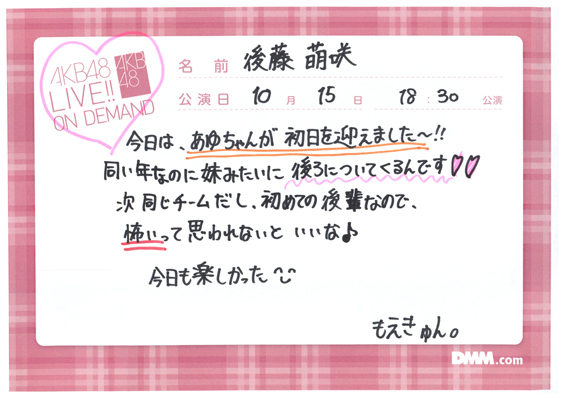 AKB48
LIVE!!
ON DEMAND
AKB
48
名前 後藤 萌咲
公演日 10月 15日 18:30 公演
今日は、あゆちゃんが 初日を迎えました〜!!
同い年なのに妹みたいに 後ろについてくるんです♡♡
次 同じチームだし、初めての後輩なので、
怖いって思われないと いいな♪
今日も楽しかった
もえきゅん。
DMM.com